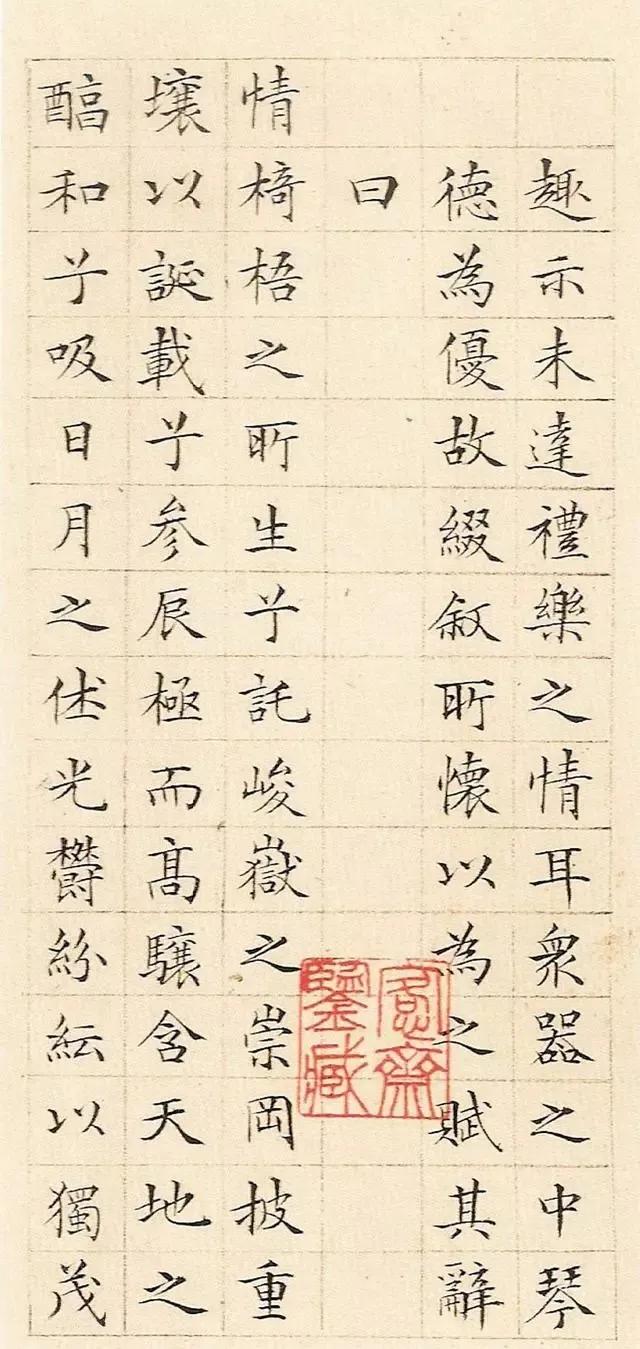 趣示未達禮樂之情耳衆器之中琴
德為優故綴叙所懷以為之賦其辭
曰
情椅梧之所生兮託峻嶽之崇岡披重
壤以誕載兮参辰極而髙驤含天地之
醇和兮吸日月之休光鬱紛紜以獨茂
愙齋
鑒藏